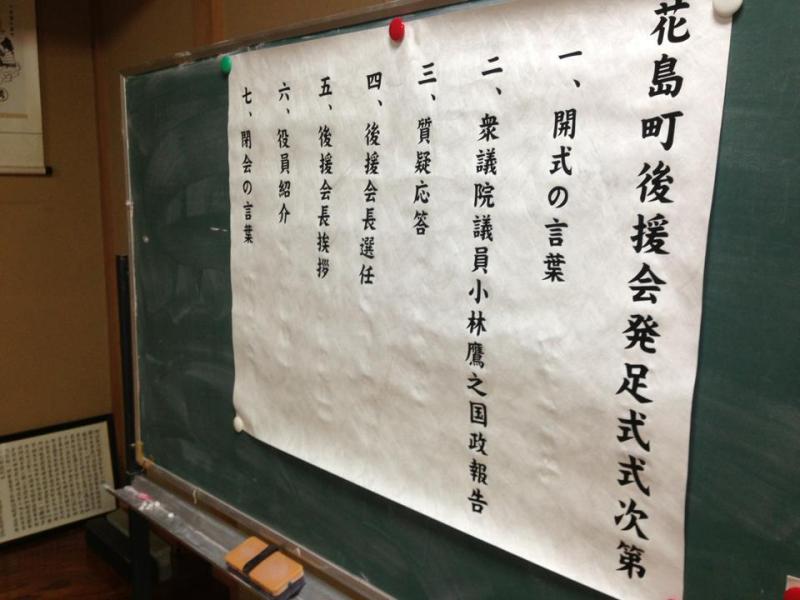 花島町後援会発足式式次第
一、開式の言葉
二、衆議院議員小林鷹之国政報告
三、質疑応答
四、後援会長選任
五、後援会長挨拶
六、役員紹介
七、閉会の言葉